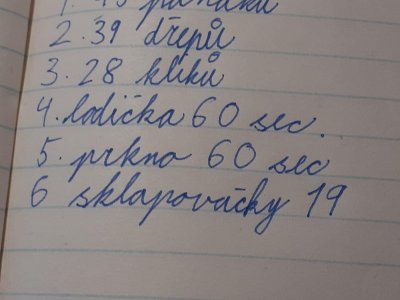 1. 45 panáků
2. 39 dřepů
3. 28 kliků
4. lodička 60 sec.
5. prkno 60 sec
6 sklapovačky 19